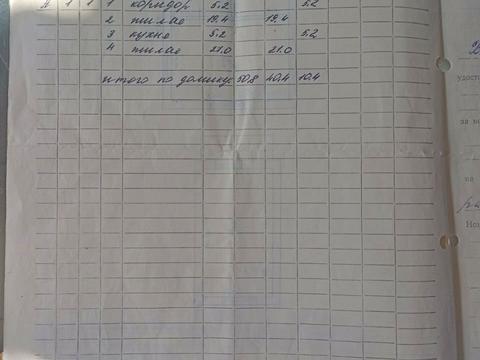 А 1 1 1 коридор 5.2 5.2
2 жилая 19.4 19.4
3 кухня 5.2 5.2
4 жилая 21.0 21.0
итого по домику: 50.8 40.4 10.4
удост
за
на
Ном